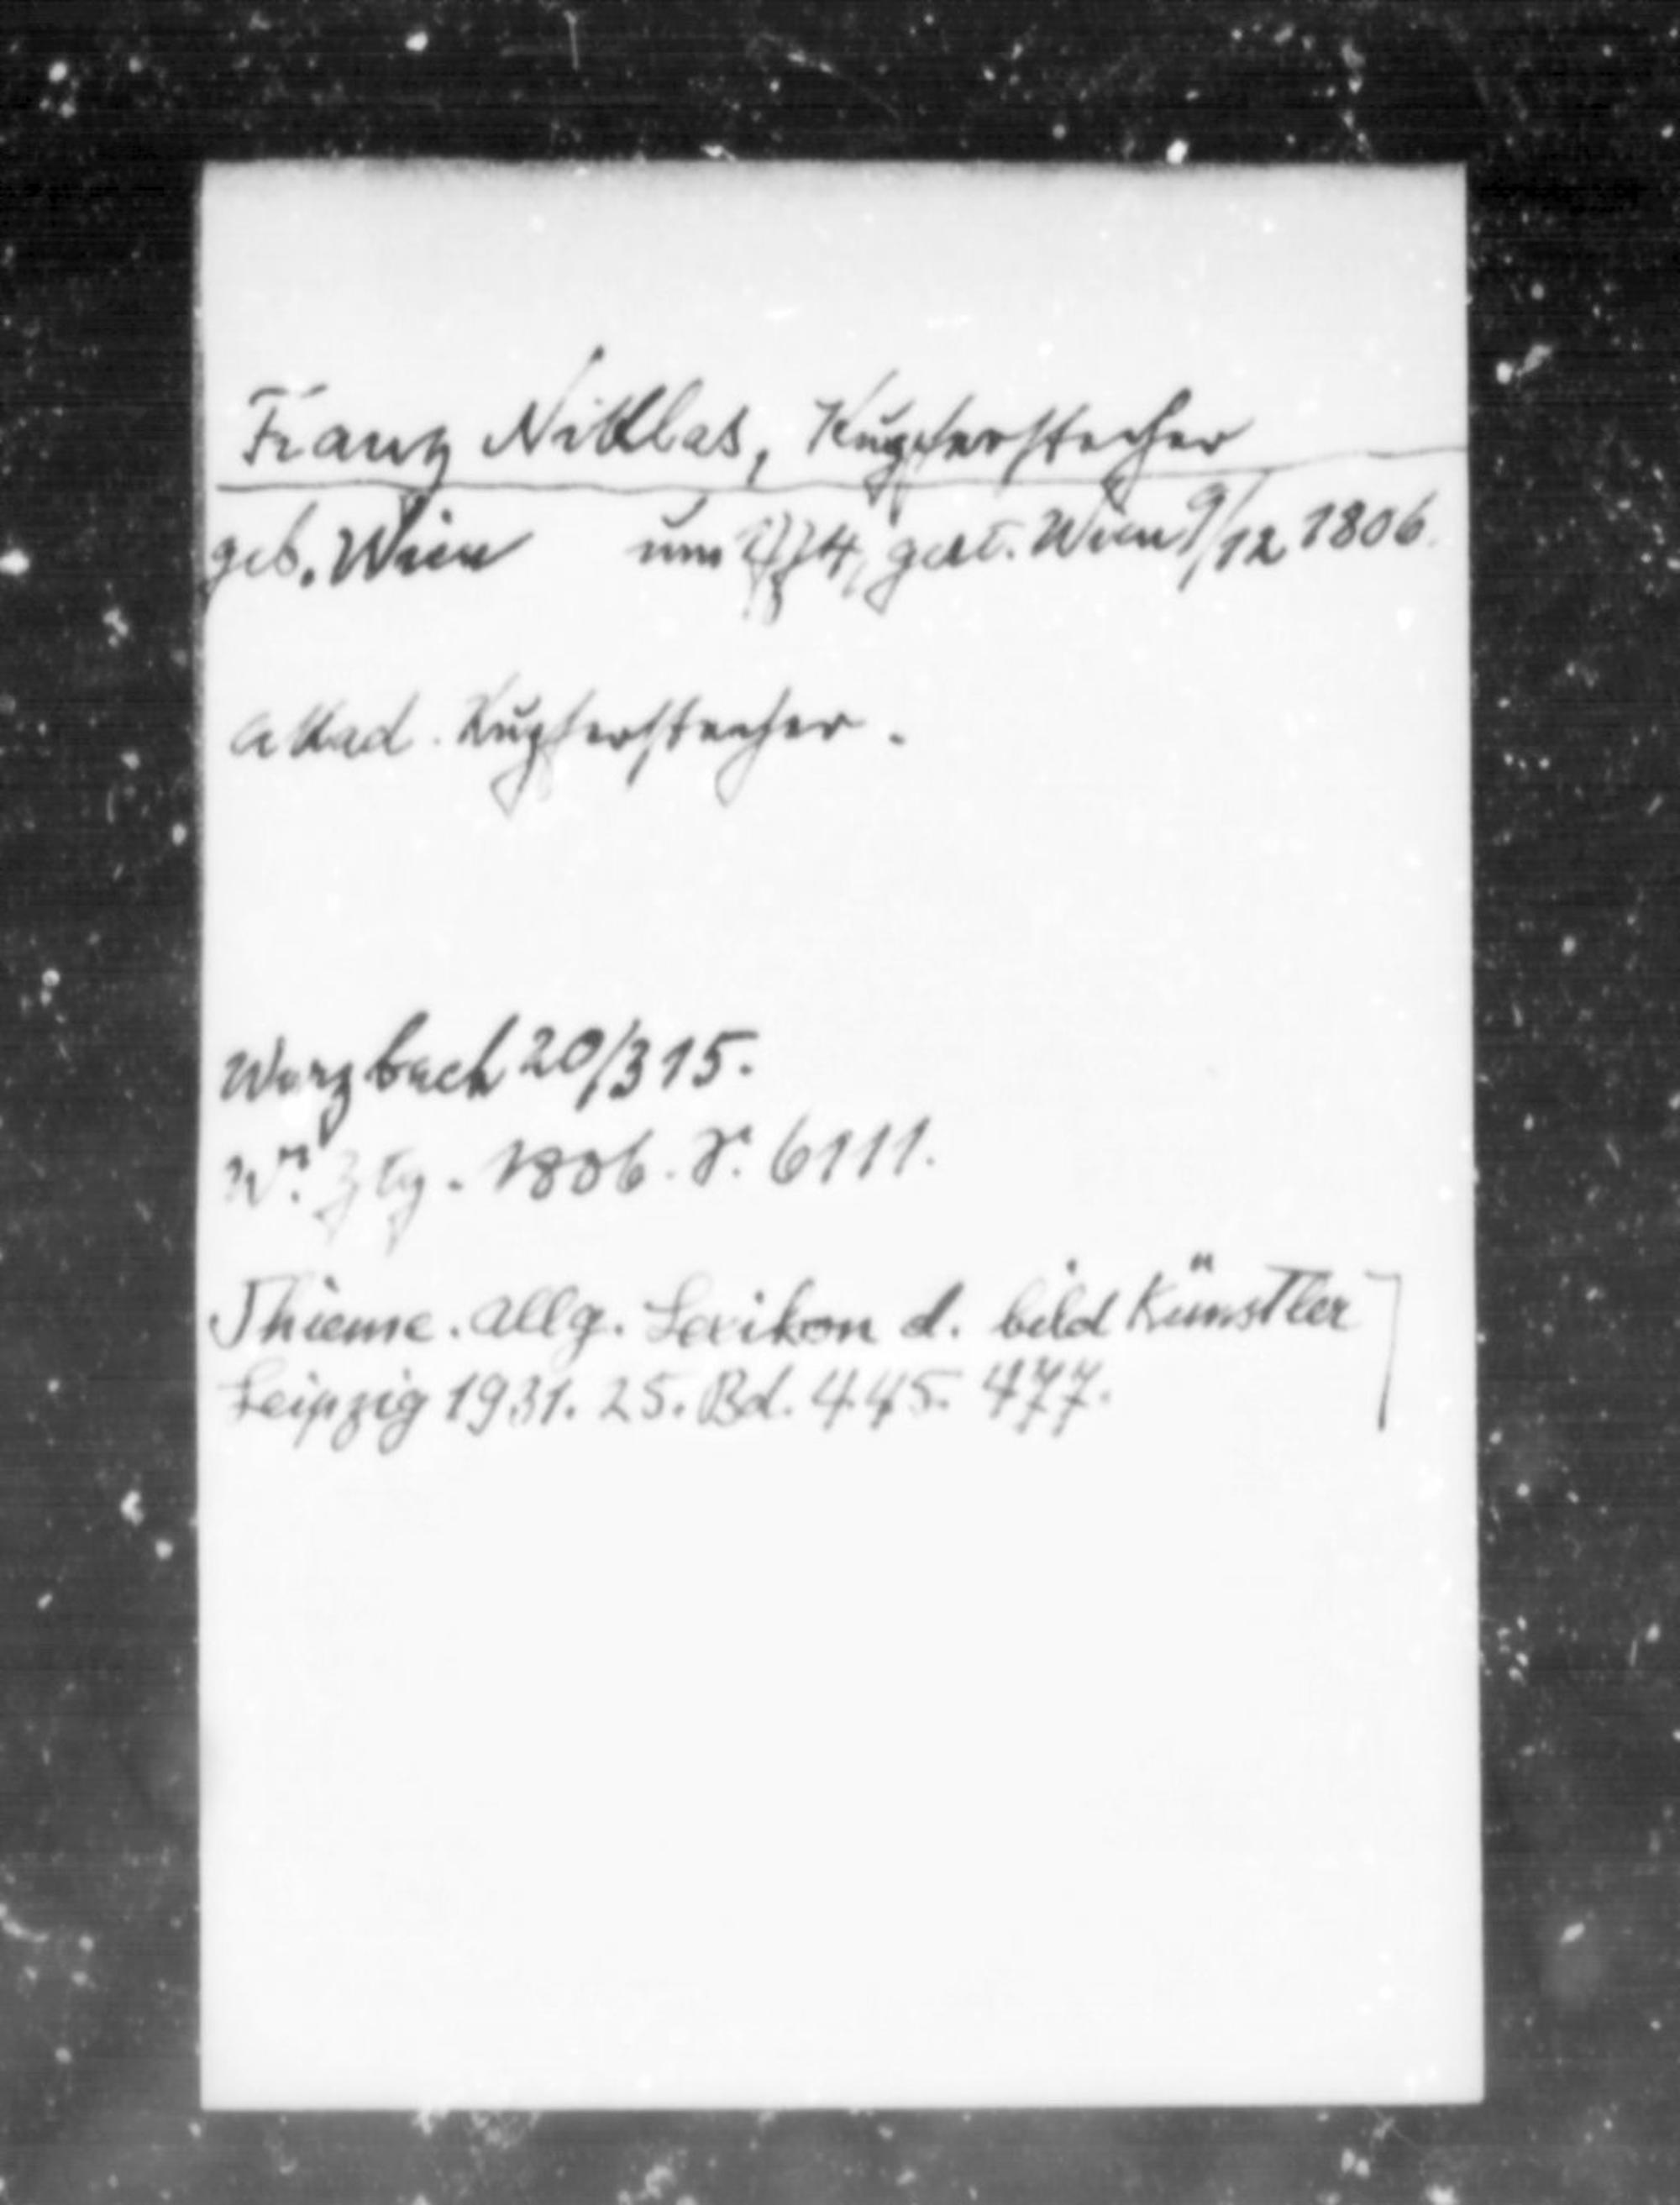 Franz Niklas, Kupferstecher
geb. Wien um 1774, gest. Wien 9/12 1806.
akad. Kupferstecher.
Wurzbach 20/315.
Wr. Ztg. 1806. S. 6111.
Thieme. Allg. Lexikon d. bild Künstler
Leipzig 1931. 25. Bd. 445. 477.